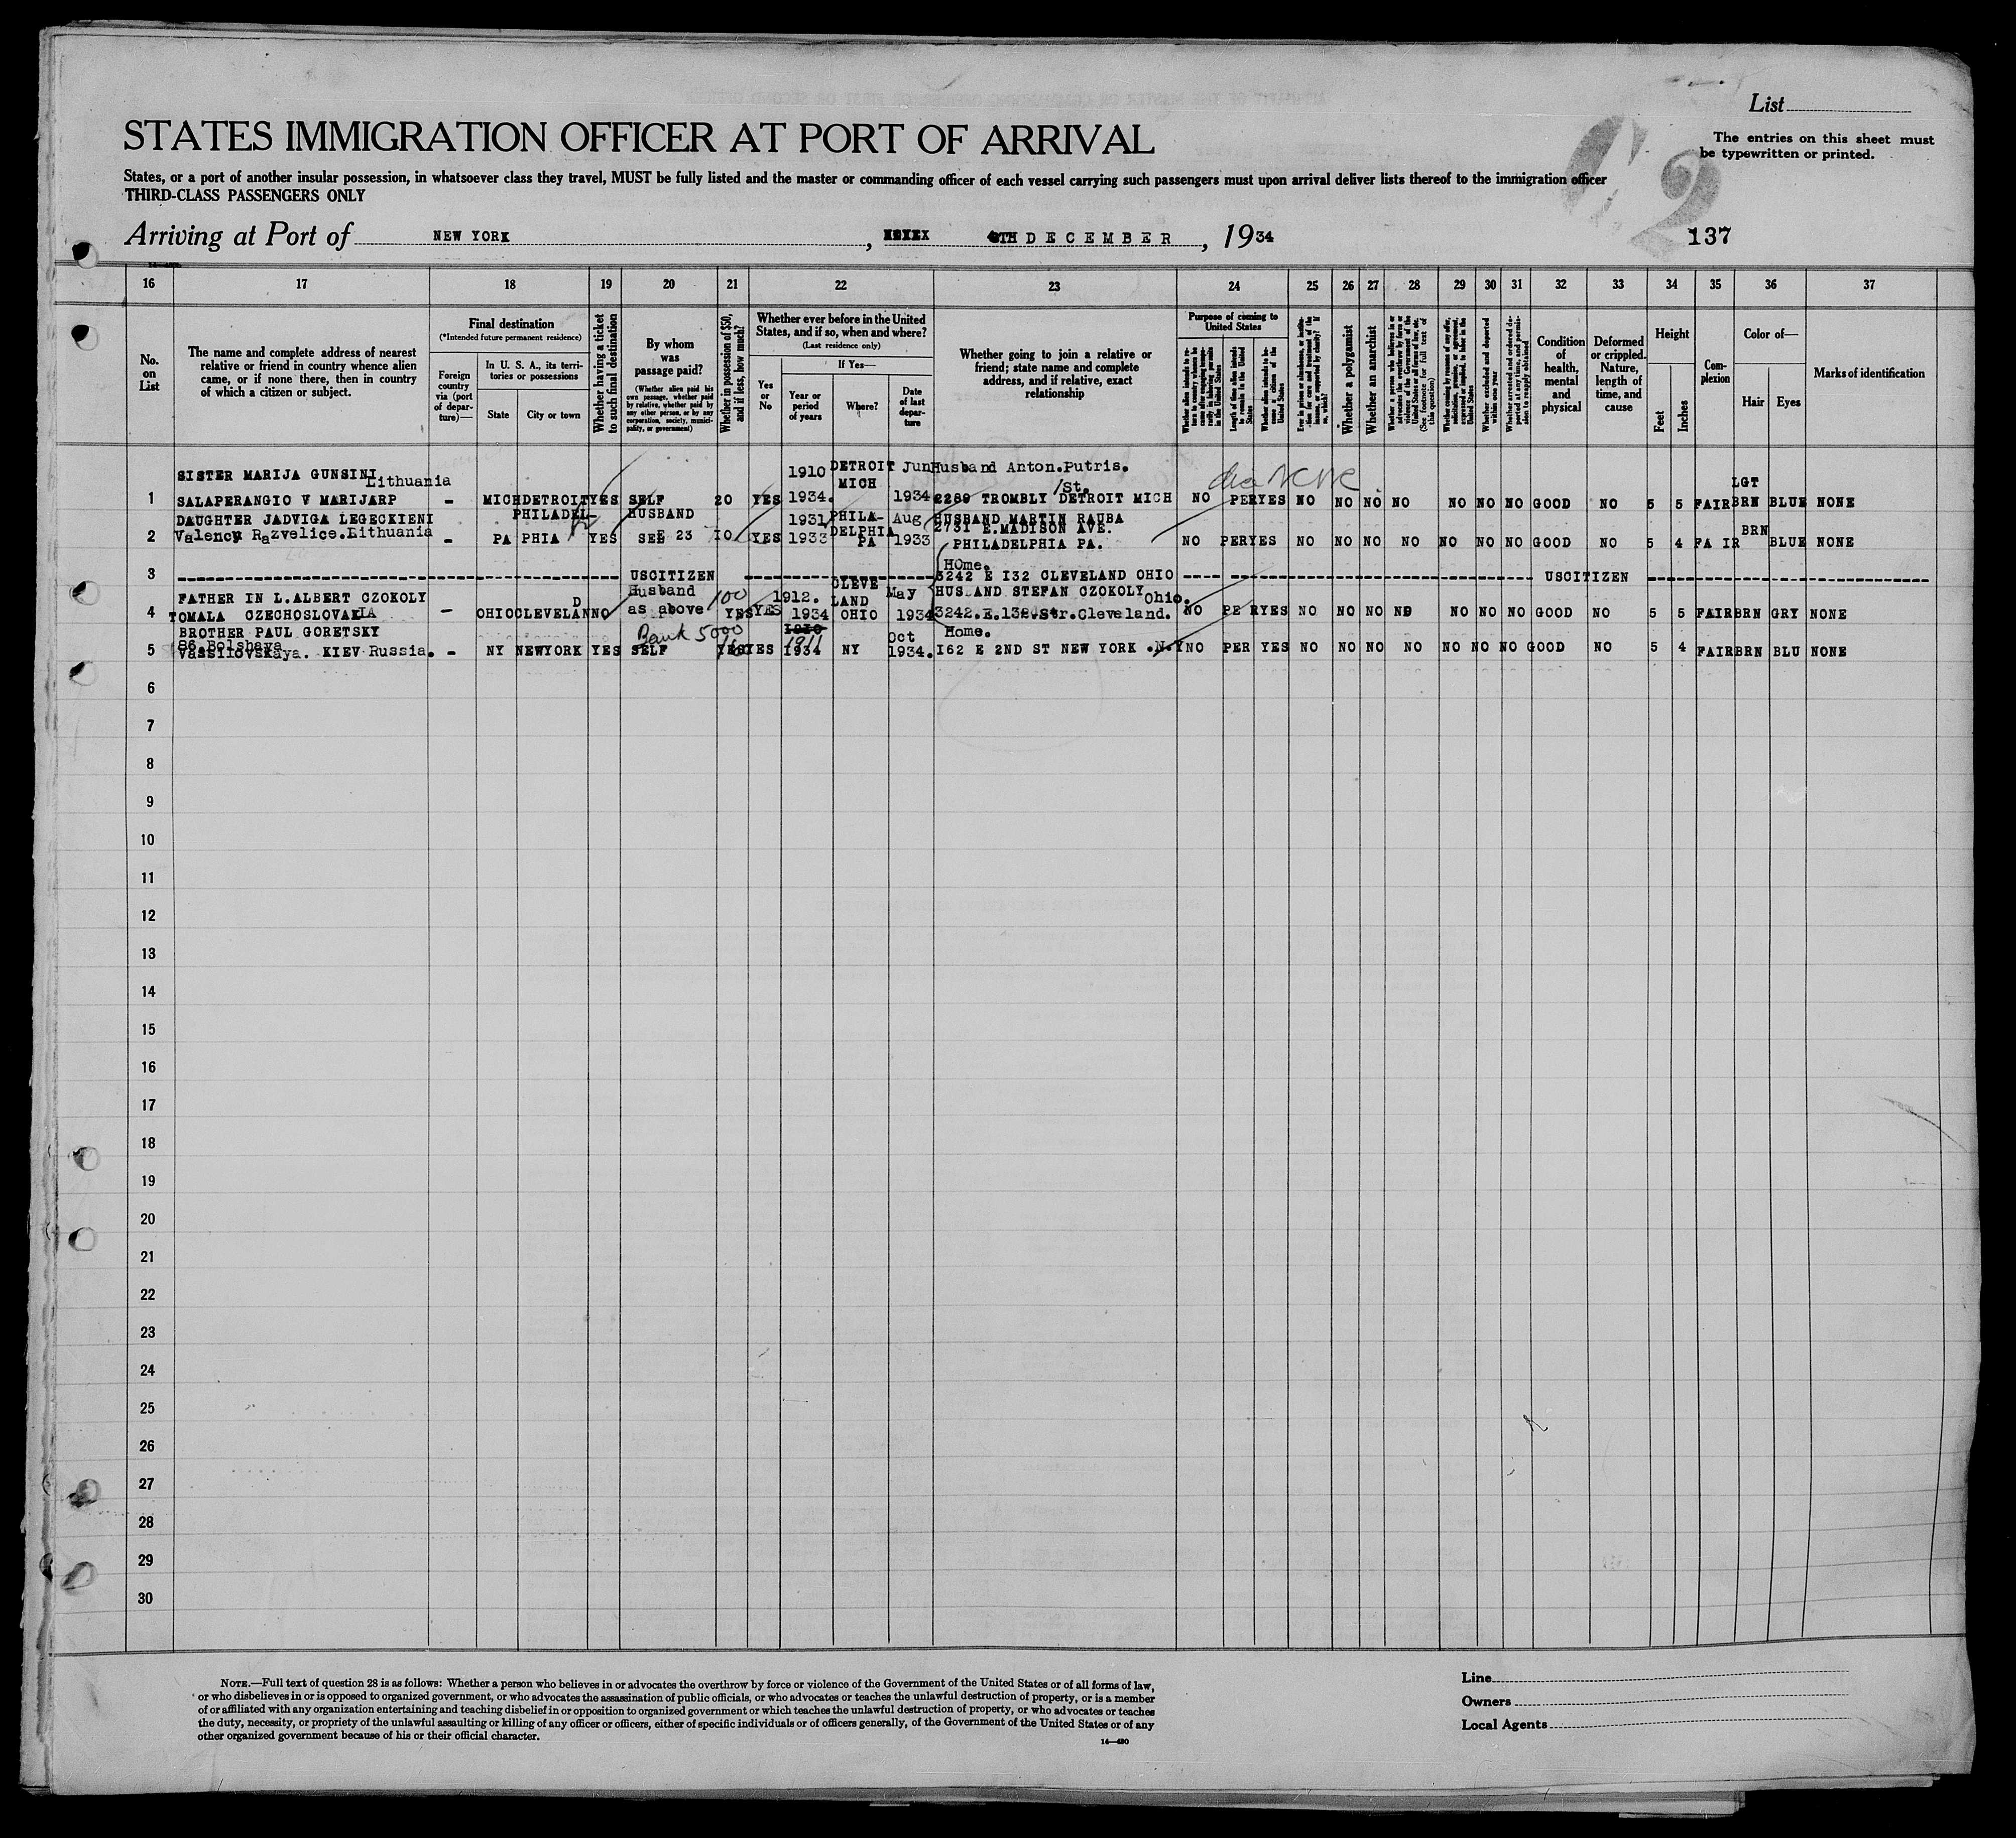 List
STATES IMMIGRATION OFFICER AT PORT OF ARRIVAL
The entries on this sheet must
be typewritten or printed.
States, or a port of another insular possession, in whatsoever class they travel, MUST be fully listed and the master or commanding officer of each vessel carrying such passengers must upon arrival deliver lists thereof to the immigration officer
THIRD-CLASS PASSENGERS ONLY
2
Arriving at Port of NEW YORK, 6TH DECEMBER, 1934
137
16 17 18 19 20 21 22 23 24 25 26 27 28 29 30 31 32 33 34 35 36 37
No. on List
The name and complete address of nearest relative or friend in country whence alien came, or if none there, then in country of which a citizen or subject.
Final destination
(*Intended future permanent residence)
Foreign country via (port of departure)—
In U. S. A., its territories or possessions
State
City or town
Whether having a ticket to such final destination
By whom was passage paid?
(Whether alien paid his own passage, whether paid by relative, whether paid by any other person, or by any corporation, society, municipality, or government)
Whether in possession of $50, and if less, how much?
Whether ever before in the United States, and if so, when and where?
(Last residence only)
Yes or No
If Yes—
Year or period of years
Where?
Date of last departure
Whether going to join a relative or friend; state name and complete address, and if relative, exact relationship
Purpose of coming to United States
Length of time alien intends to remain in the United States
Whether alien intends to become a citizen of the United States
Whether a polygamist
Whether an anarchist
(See footnote for full text of this question)
Condition of health, mental and physical
Deformed or crippled. Nature, length of time, and cause
Height
Feet
Inches
Complexion
Color of—
Hair
Eyes
Marks of identification
SISTER MARIJA GUNSINI Lithuania 1910 DETROIT MICH Jun Husband Anton.Putris. LGT
1 SALAPERANGIO V MARIJARP - MICH DETROIT YES SELF 20 YES 1934. 1934 2260 TROMBLY 1St. DETROIT MICH NO PER YES NO NO NO NO NO NO NO GOOD NO 5 5 FAIR BRN BLUE NONE
DAUGHTER JADVIGA LEGECKIENI PHILADEL- HUSBAND 1931 PHILA- Aug HUSBAND MARTIN RAUBA
2731 E.MADISON AVE. BRN
2 Valency Razvelice.Lithuania - PA PHIA YES SEE 23 10 YES 1933 DELPHIA PA 1933 PHILADELPHIA PA. NO PER YES NO NO NO NO NO NO NO GOOD NO 5 4 FAIR BLUE NONE
HOme.
3 USCITIZEN 3242 E I32 CLEVELAND OHIO USCITIZEN
FATHER IN L.ALBERT CZOKOLY Husband 100 1912. CLEVE LAND May HUS AND STEFAN CZOKOLY Ohio.
4 TOMALA CZECHOSLOVAKIA - OHIO CLEVELAND NO as above YES YES 1934 OHIO 1934 3242.E.132.Str.Cleveland. NO PER YES NO NO NO NO NO NO NO GOOD NO 5 5 FAIR BRN GRY NONE
BROTHER PAUL GORETSKY Bank 5000 1910 1911 Oct Home.
86.Bolshaya
5 Vassilovskaya. KIEV Russia. - NY NEWYORK YES SELF YES YES 1934 NY 1934. I62 E 2ND ST NEW YORK .N.Y NO PER YES NO NO NO NO NO NO NO GOOD NO 5 4 FAIR BRN BLU NONE
6
7
8
9
10
11
12
13
14
15
16
17
18
19
20
21
22
23
24
25
26
27
28
29
30
NOTE.—Full text of question 28 is as follows: Whether a person who believes in or advocates the overthrow by force or violence of the Government of the United States or of all forms of law,
or who disbelieves in or is opposed to organized government, or who advocates the assassination of public officials, or who advocates or teaches the unlawful destruction of property, or is a member
of or affiliated with any organization entertaining and teaching disbelief in or opposition to organized government or which teaches the unlawful destruction of property, or who advocates or teaches
the duty, necessity, or propriety of the unlawful assaulting or killing of any officer or officers, either of specific individuals or of officers generally, of the Government of the United States or of any
other organized government because of his or their official character.
14—430
Line
Owners
Local Agents